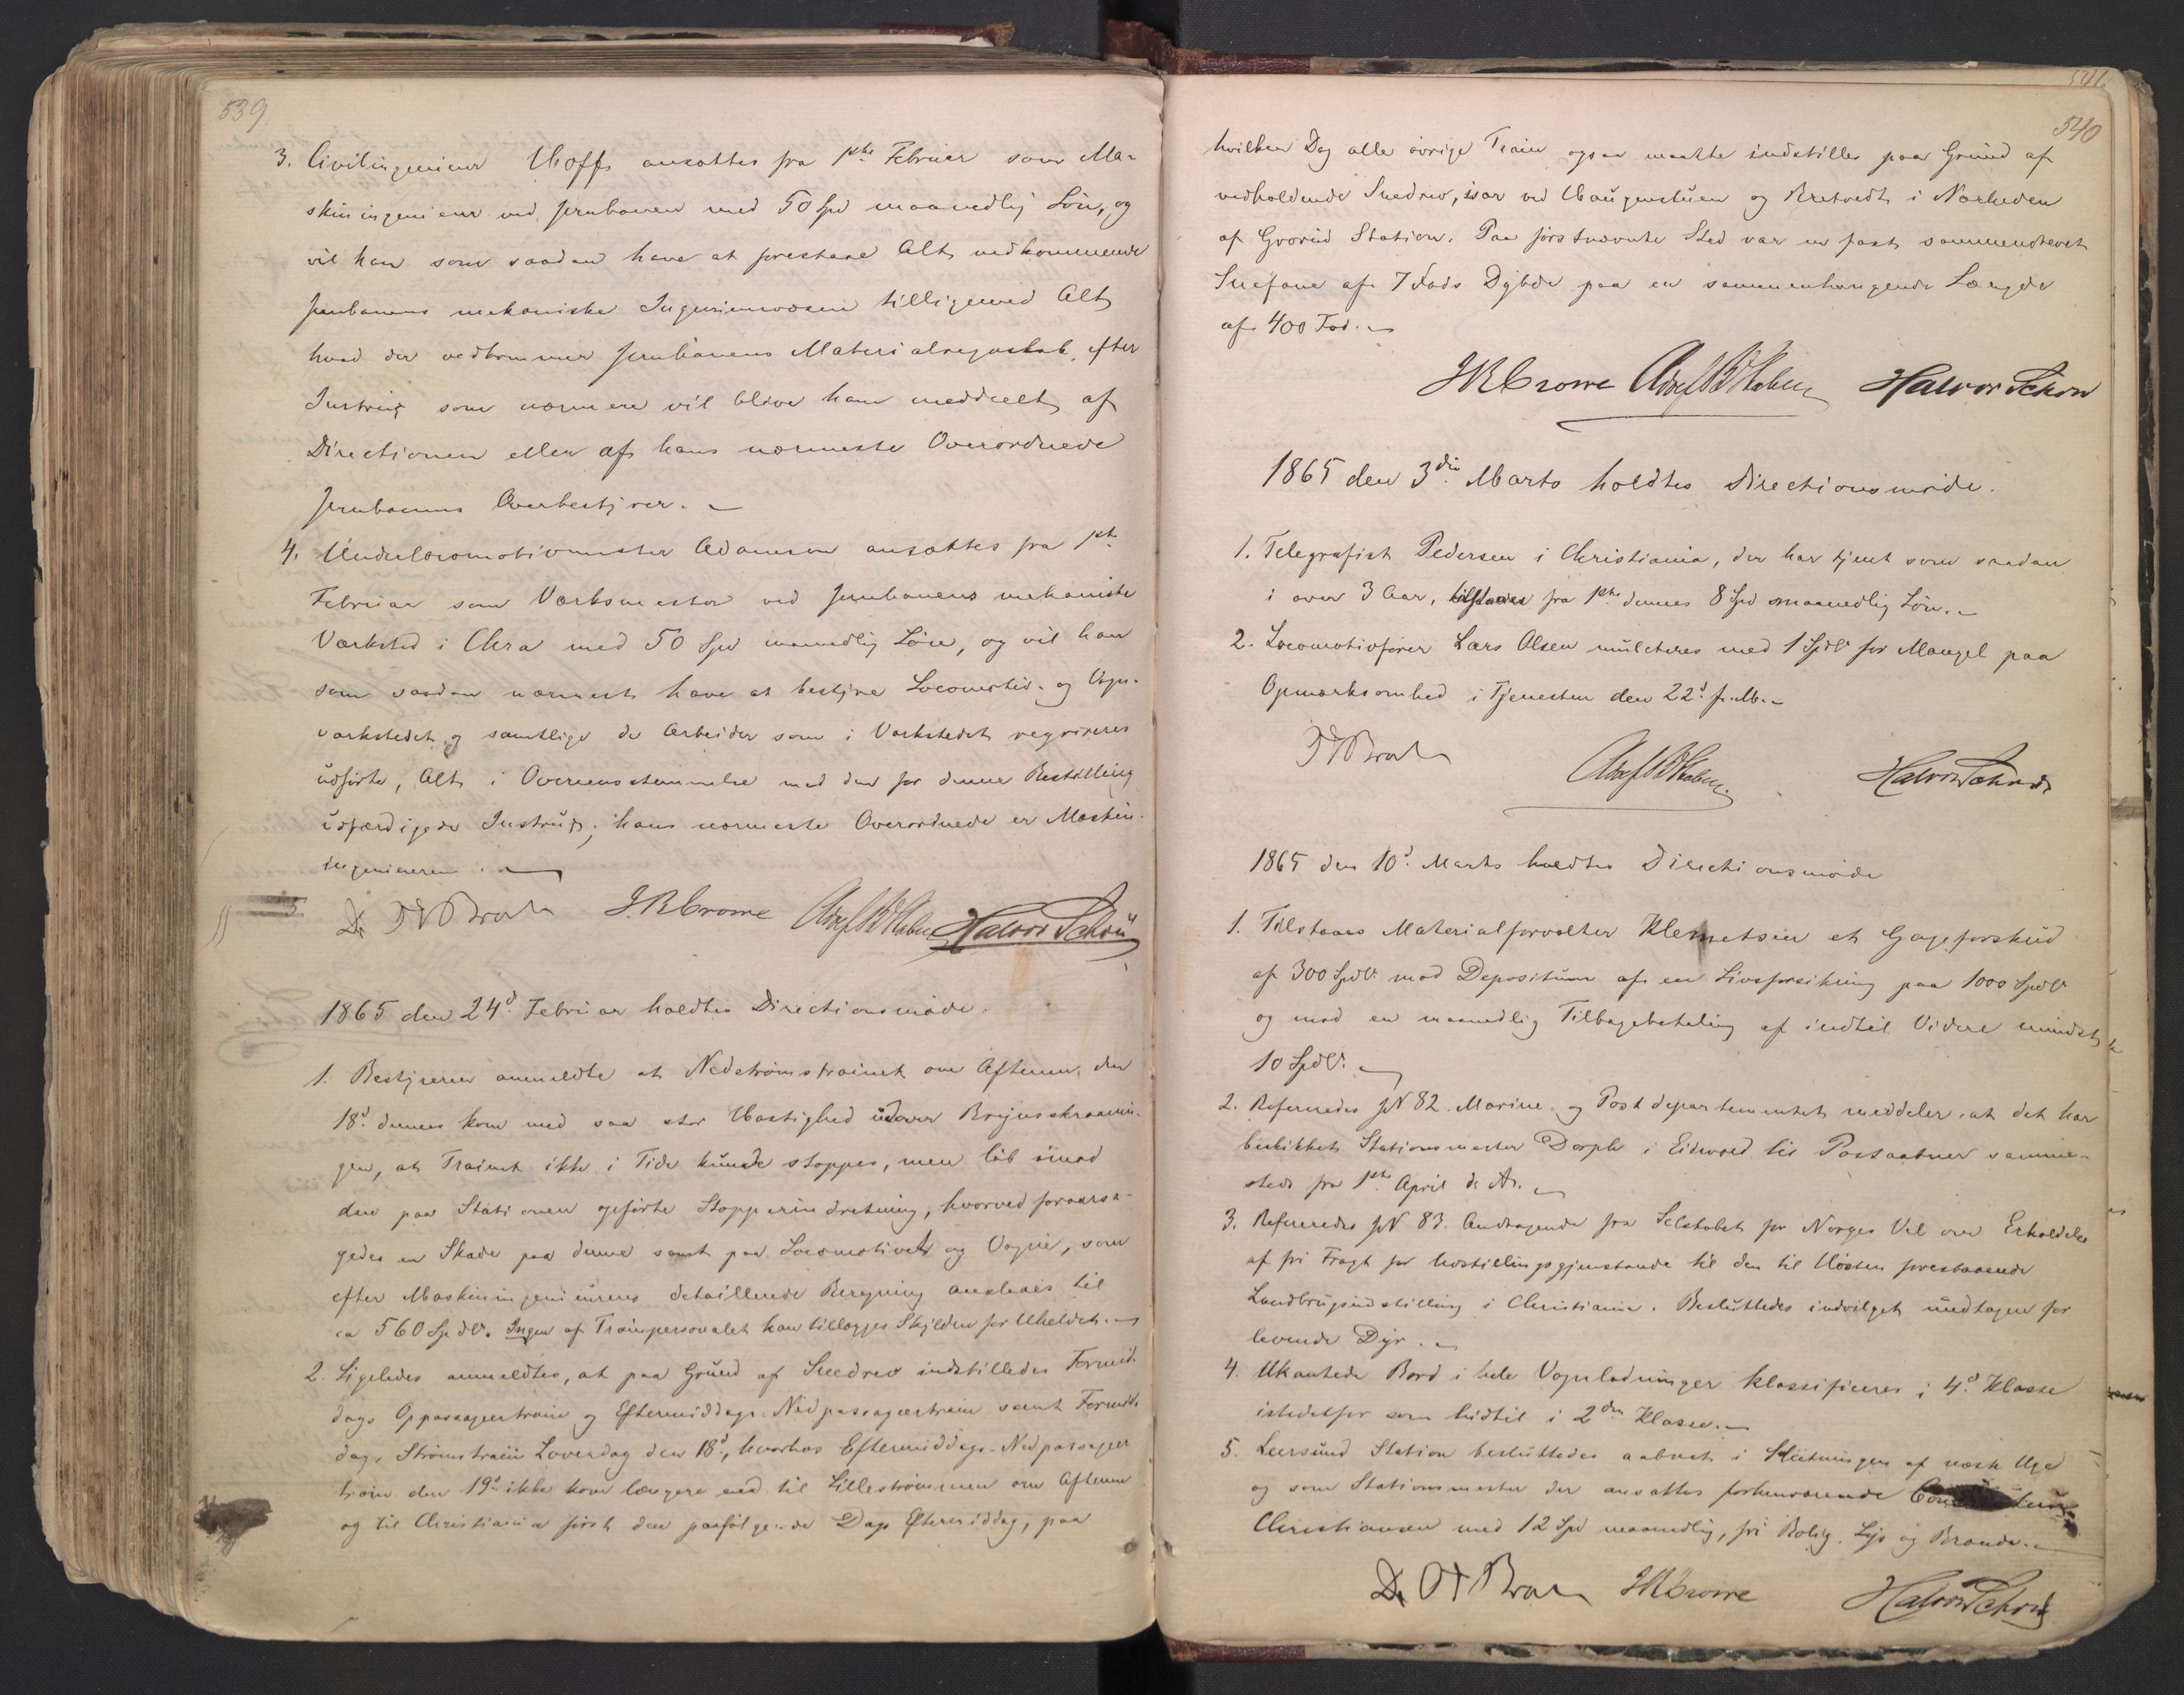 539
3. Civilingenieur Hoff ansættes fra 1ste Februar som Ma-
skiningenieur ved Jernbanen med 50 Spd maanedlig Løn, og
vil han som saadan have at forestaae Alt vedkommende
Jernbanens mekaniske Ingenieurvæsen tilligemed Alt
hvad der vedkommer Jernbanens Materialregnskab, efter
Instrux som nærmere vil blive ham meddeelt af
Directionen eller af hans nærmeste Overordnede
Jernbanens Overbestyrer.
4. Underlocomotivmester Adamson ansættes fra 1ste
Februar som Værksmester ved Jernbanens mekaniske
Værksted i Chra med 50 Spd maanedlig Løn, og vil han
som saadan nærmest have at bestyre Locomotiv- og Vogn-
værkstedet og samtlige de Arbeider som i Værkstedet reqvireres
udførte, Alt i Overeensstemmelse med den for denne Bestilling
udfærdigede Instrux; hans nærmeste Overordnede er Maskin-
ingenieuren.
JRCrowe Halvor Schou
1865 den 24d Februar holdtes Directionsmøde.
1. Bestyreren anmeldte at Nedstrømstrainet om Aftenen den
18d dennes kom med saa stor Hastighed udover Brynsskraanin-
gen, at Trainet ikke i Tide kunde stoppes, men løb imod
den paa Stationen opførte Stopperindretning, hvorved foraarsa-
gedes en Skade paa denne samt paa Locomotivet og Vogne, som
efter Maskiningenieurens detaillerede Beregning ansloaes til
ca 560 Spdlr. Ingen af Trainpersonalet kan tillægges Skylden for Uheldet.
2. Ligeledes anmeldtes, at paa Grund af Sneedrev indstilledes Formid-
dags Oppassagertrain og Eftermiddags Nedpassagertrain samt Formid-
dag, Strømstrain Løverdag den 18d, hvorhos Eftermiddags-Nedpassager
train den 19d ikke kom længere end til Lillestrømmen om Aftenen
og til Christiania først den paafølgende Dags Eftermiddag, paa
540
hvilken Dag alle øvrige Train ogsaa maatte indstilles paa Grund af
vedholdende Snedrev, især ved Haugenstuen og Bretvedt i Nærheden
af Grorud Station. Paa førstnævnte Sted var en fast sammendrevet
Snefane af 7 Fods Dybde paa en sammenhængende Længde
af 400 Fod.
JRCrowe Halvor Schou
1865 den 3die Marts holdtes Directionsmøde.
1. Telegrafist Pedersen i Christiania, der har tjent som saadan
i over 3 Aar, tilstaaes fra 1ste dennes 8 Spd maanedlig Løn.
2. Locomotivfører Lars Olsen mulcteres med 1 Spdlr for Mangel paa
Opmærksomhed i Tjenesten den 22d f. M.
Halvor Schou
1865 den 10d Marts holdtes Directionsmøde
1. Tilstaaes Materialforvalter Klemetsen et Gageforskud
af 300 Spdlr mod Depositum af en Livsforsikring paa 1000 Spdlr
og mod en maanedlig Tilbagebetaling af indtil Videre mindst
10 Spdlr.
2. Refereredes JN 82. Marine- og Postdepartementet meddeler at det har
beskikket Stationsmester Dorph i Eidsvold til Postaabner samme-
steds fra 1ste April d. A.
3. Refereredes JN 83. Andragende fra Selskabet for Norges Vel om Erholdelse
af fri Fragt for Udstillingsgjenstande til den til Høsten forestaaende
Landbrugsudstilling i Christiania. Besluttedes indvilget undtagen for
levende Dyr.
4. Ukantede Bord i hele Vognladninger klassificeres i 4d Klasse
istedetfor som hidtil i 2den Klasse.
5. Leersund Station besluttedes aabnet i Slutningen af næste Uge
og som Stationsmester der ansattes forhenværende
Christiansen med 12 Spd maanedlig, fri Bolig, Lys og Brænde.
JRCrowe Halvor Schou